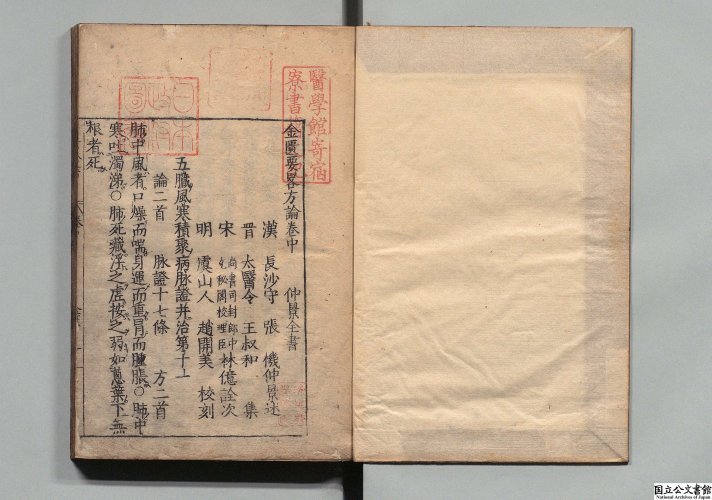 金匱要畧方論卷中　仲景全書
漢　長沙守　張　機仲景述
晋　太醫令　王叔和　集
宋　尚書司封郎中
充秘閣校理臣　林億詮次
明　虞山人　趙開美　校刻
五臟風寒積聚病脉證并治第十一
論二首　脉證十七條　方二首
肺中風者口燥而喘身運而重冒而腫脹○肺中
寒吐濁涕○肺死臟浮之虛按之弱如蔥葉下無
根者死
醫學館寄宿
寮書
日本
国立公文書館
National Archives of Japan